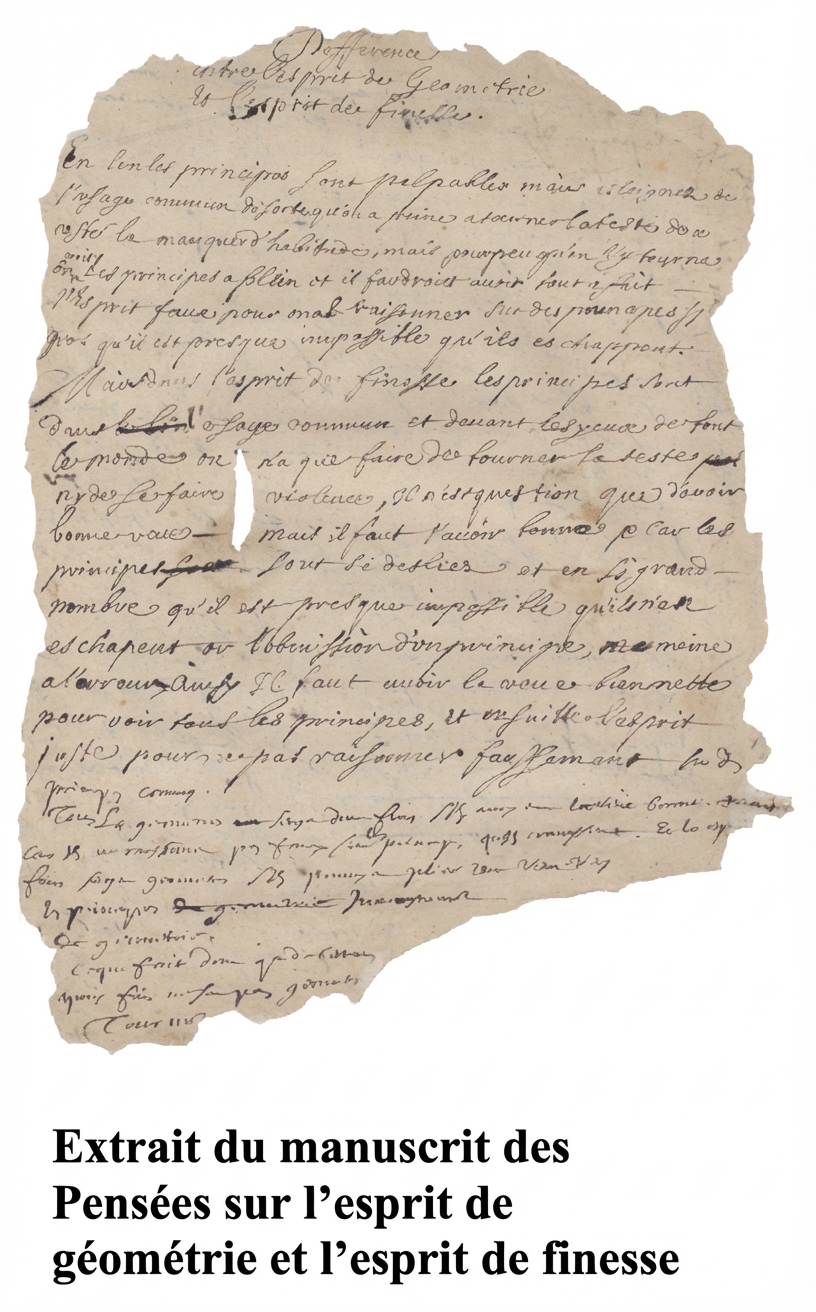 Difference
entre l'esprit de Geometrie
et l'esprit de finesse.
En l'un les principes sont palpables mais esloignez de
l'usage commun de sorte qu'on a peine a tourner la teste de ce
costé la manque d'habitude, mais pour peu qu'on s'y tourne
on les principes a plein et il faudroit avoir tout a fait
l'esprit faux pour mal raisonner sur des principes si
gros qu'il est presque impossible qu'ils eschappent.
Mais dans l'esprit de finesse les principes sont
dans l'usage commun et devant les yeux de tout
le monde on n'a que faire de tourner la teste
ny de se faire violence, Il n'est question que d'avoir
bonne veue mais il faut l'avoir bonne, car les
principes sont si desliez et en si grand
nombre qu'il est presque impossible qu'il n'en
eschapent or l'obmission d'un principe, meine
a l'erreur Ainsy Il faut avoir la veue bien nette
pour voir tous les principes, et ensuitte l'esprit
juste pour ne pas raisonner faussement sur des
principes connus.
Tous les geometres seroyent donc fins s'ils avoyent la veue bonne.
car ils ne raisonnent pas faux sur les principes qu'ils connoissent. Et les esprits
fins seroyent geometres s'ils pouvoyent plier leur veue vers
les principes
de geometrie.
Ce qui fait donc que de certains
esprits fins ne sont pas geometres
Extrait du manuscrit des
Pensées sur l’esprit de
géométrie et l’esprit de finesse